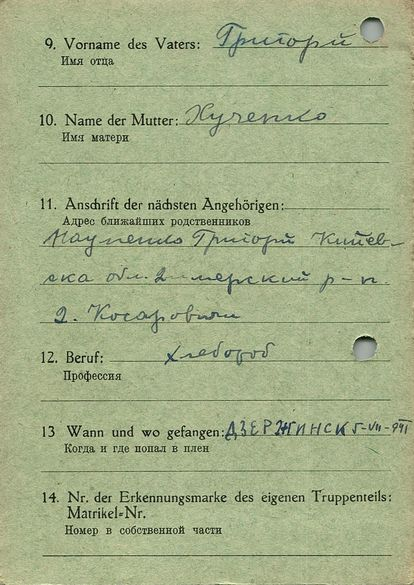 9. Vorname des Vaters: Григорй
Имя отца
10. Name der Mutter: Кученко
Имя матери
11. Anschrift der nächsten Angehörigen:
Адрес ближайших родственников
Науменко Григорй Киïев-
ска обл. Димерский р-н
Д. Косаровичи
12. Beruf: хлебороб
Профессия
13 Wann und wo gefangen: ДЗЕРЖИНСК 5-VII-941
Когда и где попал в плен
14. Nr. der Erkennungsmarke des eigenen Truppenteils:
Matrikel=Nr.
Номер в собственной части